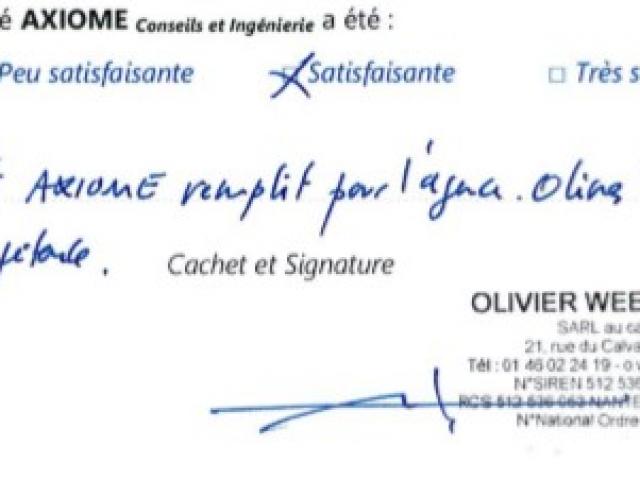 é AXIOME Conseils et Ingénierie a été :
Peu satisfaisante Satisfaisante Très s
AXIOME remplit pour l'agence. Olivier
Cachet et Signature
OLIVIER WEE
SARL au ca
21, rue du Calva
Tél : 01 46 02 24 19 - o w
N°SIREN 512 536
RCS 512 536 063 NANTE
N°National Ordre